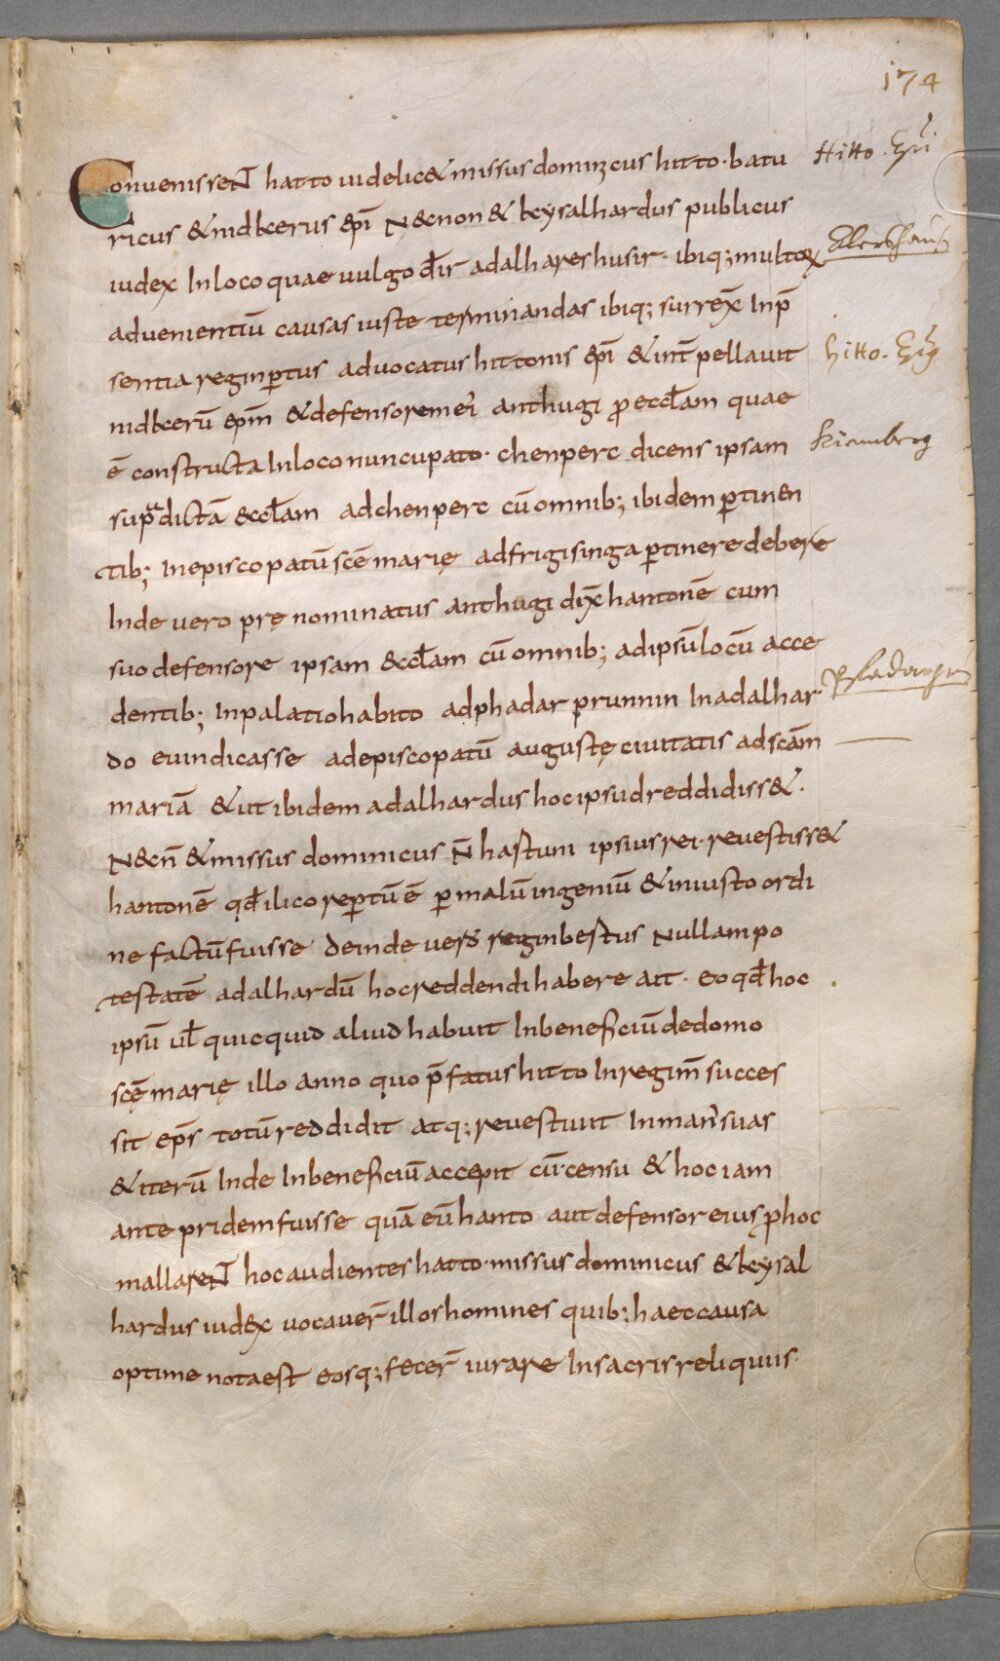 174
ConvenisseNT hatto uidelic& missus dominicus hitto · batu
Hitto. Epi
ricus & nidkerus epī N&cnon & keysalhardus publicus
iudex In loco quae uulgo dr̄ adalhareshusir · ibiq; multoꝝ
advenientiū causas iuste terminandas ibiq; surrex̄ Inp̄
sentia reginp̄tus advocatus hittonis epī & int̄pellauit
hitto. Epī
nidkerū ep̄m & defensorem ei anthugi ꝓ eccl̄am quae
ē constructa In loco nuncupato · chenperc dicens ipsam
Kiemberg
sup̄adictā eccl̄am ad chenperc cū omnib; ibidem ꝑtinen
tib; In episcopatū scē marię ad frigisinga ꝑtinere debere
Inde vero prę nominatus anthugi dix̄ hantonē cum
suo defensore ipsam eccl̄am cū omnib; ad ipsū locū acce
dentib; In palatio habito ad phadar prunnin In adalhar
do evindicasse ad episcopatū augustę ciuitatis ad scām
mariā & ut ibidem adalhardus hoc ipsud reddidiss&·
N&cn̄ & missus dominicus N̄ hastum ipsius rei · revestiss&
hantonē qđ ilico reꝑtū ē ꝑ malū ingeniū & iniusto ordi
ne factū fuisse deinde vero reginbertus Nullam po
testatē adalhardū hoc reddendi habere ait · eo qđ hoc
ipsū ul̄ quicquid aliud habuit In beneficiū de domo
scę marię illo anno quo p̄fatus hitto In regim̄ succes
sit ep̄s totū reddidit atq; revestivit In man' suas
& iterū Inde In beneficiū accepit cū censu & hoc iam
ante pridem fuisse quā eū hanto aut defensor eius ꝓ hoc
mallareNT hoc audientes hatto · missus dominicus & keysal
hardus iudex vocaver̄ illos homines quib; haec causa
optime nota est eosq; fecer̄ iurare In sacris reliquiis·